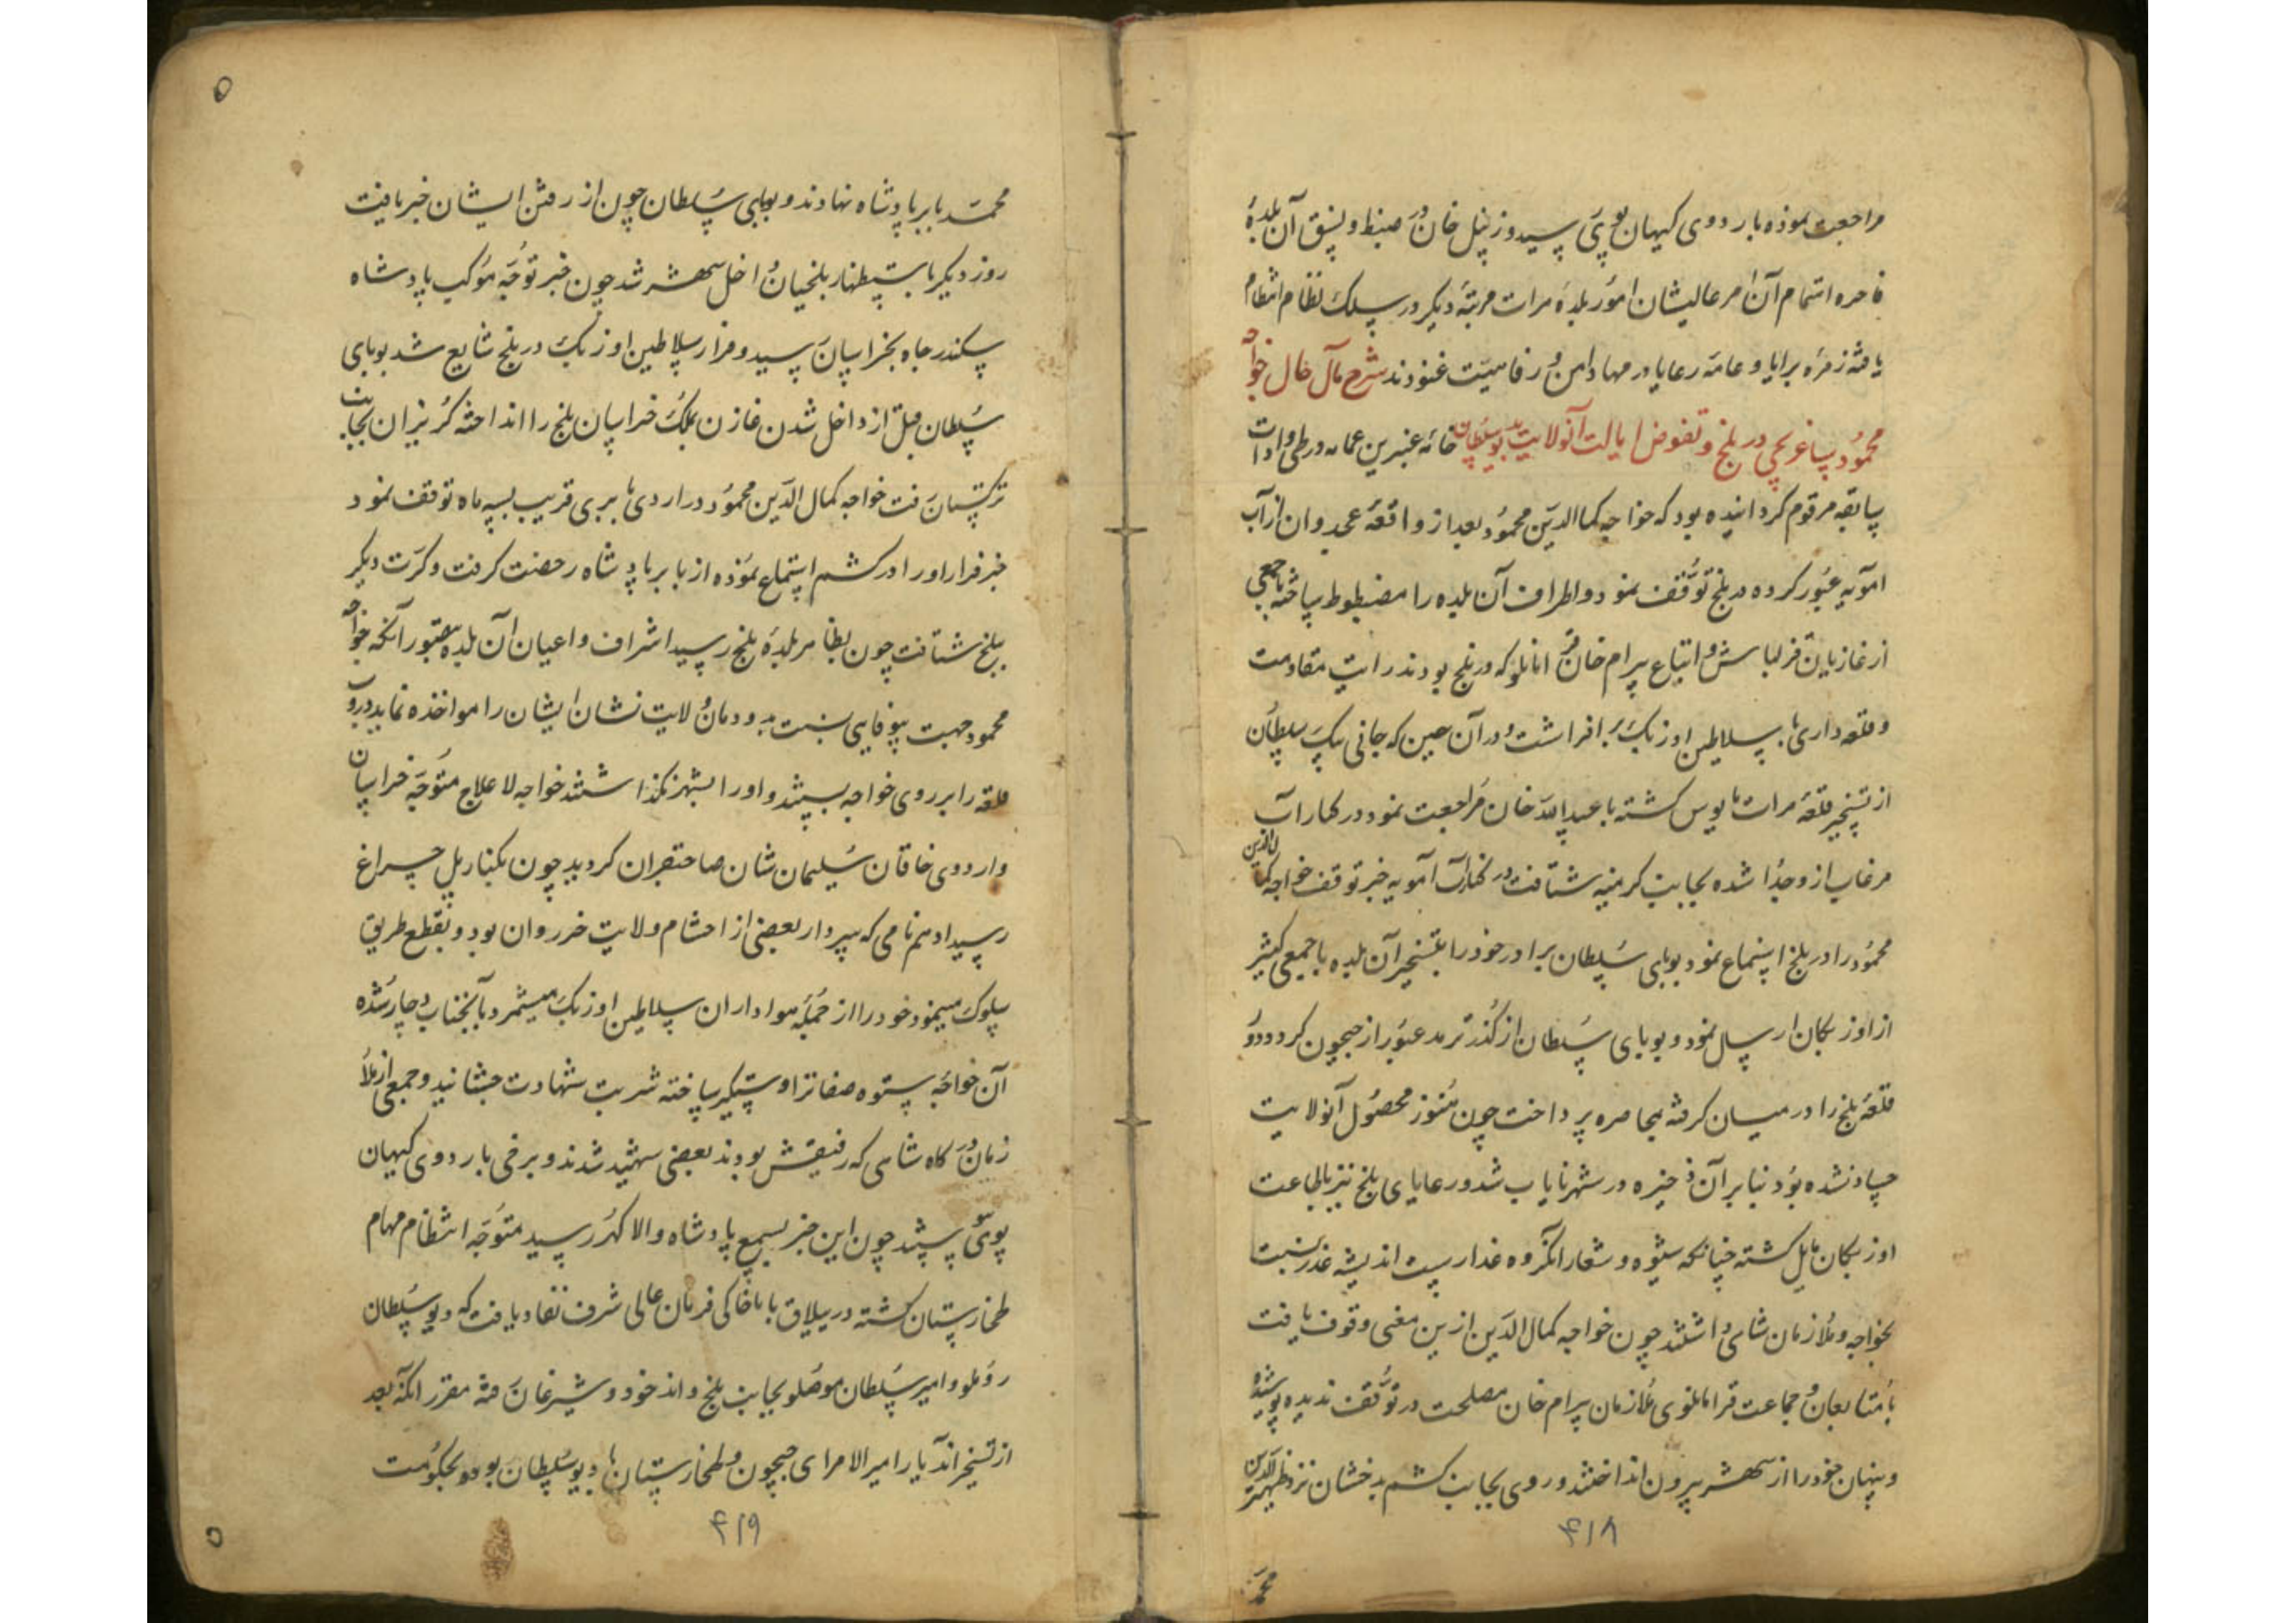 مراجعت نموده باردوی کیهان پوی رسید و زینل خان در ضبط و نسق آن بلدهٔ
فاخره اهتمام آن امر عالیشان امور بلدهٔ هرات مرتبهٔ دیگر در سلک نظام انتظام
یافته زمرهٔ برایا و عامه رعایا در مهاد امن و رفاهیت غنودند شرح مآل حال خواجه
محمود ساغرچی در بلخ و تفویض ایالت آنولایت بدیو سلطان خامه عنبرین عمامه در طی واردات
سابقه مرقوم گردانیده بود که خواجه کمال الدین محمود بعد از واقعهٔ غجدوان از آب
آمویه عبور کرده در بلخ توقف نمود و اطراف آن بلده را مضبوط ساخته با جمعی
از غازیان قزلباش و اتباع بیرام خان قرامانلو که در بلخ بودند رایت مقاومت
و قلعه داری با سلاطین اوزبک برافراشت و در آن حین که جانی بیک سلطان
از تسخیر قلعهٔ هرات مایوس گشته با عبیدالله خان مراجعت نمود در کنار آب
مرغاب از و جدا شده بجانب کرمینه شتافت در کنار آب آمویه خبر توقف خواجه کمال الدین
محمود را در بلخ استماع نمود بوبای سلطان برادر خود را بتسخیر آن بلده با جمعی کثیر
از اوزبکان ارسال نمود و بوبای سلطان از گذر ترمد عبور از جیحون کرد و دور
قلعهٔ بلخ را در میان گرفته بمحاصره پرداخت چون هنوز محصول آنولایت
حصاد نشده بود بنابر آن ذخیره در شهر نایاب شد و رعایای بلخ نیز باطاعت
اوزبکان مایل گشته چنانکه شیوه و شعار آنگروه غدار است اندیشه غدر نسبت
بخواجه و ملازمان شاهی داشتند چون خواجه کمال الدین ازین معنی وقوف یافت
با متابعان و جماعت قرامانلوی ملازمان بیرام خان مصلحت در توقف ندیده پوشیده
و پنهان خود را از شهر بیرون انداختند و روی بجانب کشم بدخشان نزد ظهیر الدین
۴۱۸
محمد
محمد بابر پادشاه نهادند و بوبای سلطان چون از رفتن ایشان خبر یافت
روز دیگر باستظهار بلخیان داخل شهر شد چون خبر توجه موکب پادشاه
سکندر جاه بخراسان رسید و فرار سلاطین اوزبک در بلخ شایع شد بوبای
سلطان قبل از داخل شدن غازیان بملک خراسان بلخ را انداخته گریزان بجانب
ترکستان رفت خواجه کمال الدین محمود در اردوی بابری قریب بسه ماه توقف نمود
خبر فرار او را در کشم استماع نموده از بابر پادشاه رخصت گرفت و کرت دیگر
ببلخ شتافت چون بظاهر بلدهٔ بلخ رسید اشراف و اعیان آن بلده بتصور آنکه خواجه
محمود جهت بیوفایی نسبت بدودمان ولایت نشان ایشان را مواخذه نماید دروب
قلعه را بر روی خواجه بستند و او را بشهر نگذاشتند خواجه لاعلاج متوجه خراسان
و اردوی خاقان سلیمان شان صاحبقران گردید چون بکنار پل چراغ
رسید ادهم نامی که سردار بعضی از احشام ولایت خرروان بود و بقطع طریق
سلوک مینمود خود را از جمله هواداران سلاطین اوزبک میشمرد بآنجناب دچار شده
آن خواجه ستوده صفات را دستگیر ساخته شربت شهادت چشانید و جمعی از ملا
زمان درگاه شاهی که رفیقش بودند بعضی شهید شدند و برخی باردوی کیهان
پوی پیوستند چون این خبر بسمع پادشاه والا گهر رسید متوجه انتظام مهام
طخارستان گشته در ییلاق باباخاکی فرمان عالی شرف نفاد یافت که دیو سلطان
روملو و امیر سلطان موصلو بجانب بلخ و اندخود و شبرغان رفته مقرر آنکه بعد
از تسخیر آندیار امیر الامرای جیحون و طخارستان با دیو سلطان بود و بحکومت
۴۱۹